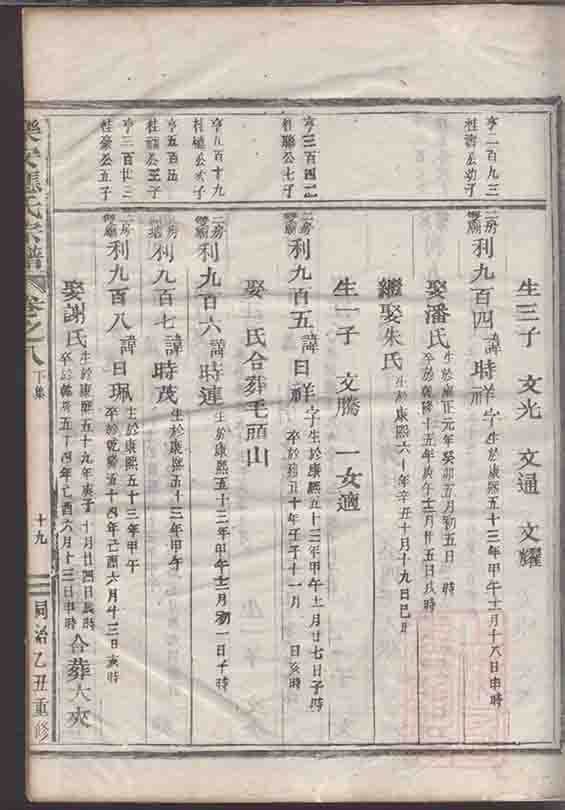 生三子 文光 文通 文耀
亨二百九三
桂濟公幼子
二房雙廟 利九百四 諱時祥 字 生於康熙五十三年甲午十二月十八日申時
娶潘氏 生於雍正元年癸卯五月初五日 時
卒於乾隆十五年庚午十二月廿五日戌時
繼娶朱氏 生於康熙六十年辛丑十月十九日巳時
生一子 文騰 一女適
亨三百四二
桂聯公七子
二房雙廟 利九百五 諱日祥 字 生於康熙五十三年甲午十二月廿七日子時
卒於 十年 子十一月 日亥時
娶 氏合葬毛頭山
亨五百十九
桂 公次子
二房雙廟 利九百六 諱時連 生於康熙五十三年甲午十二月初一日子時
亨五百五
桂 公三子
房 利九百七 諱時茂 生於康熙五十三年甲午
亨三百廿三
桂豪公五子
二房雙廟 利九百八 諱日珮 生於康熙五十三年甲午
卒於乾隆五十四年己酉六月十三日亥時
娶謝氏 生於康熙五十九年庚子十月廿四日辰時
卒於乾隆五十四年己酉六月十三日申時 合葬大夾
樂安 氏宗譜 卷之八 下集 十九 同治乙丑重修